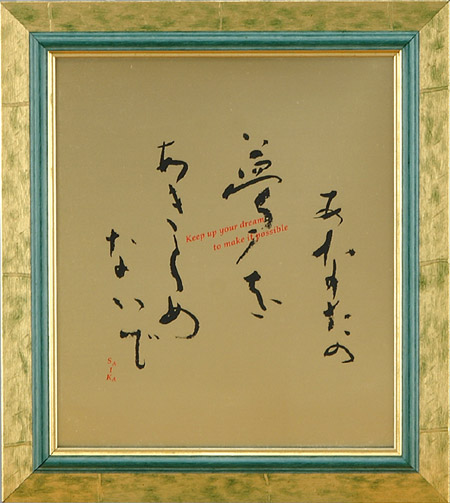 あなたの
夢を
あきらめ
ないで
Keep up your dream
to make it possible
SAIKA